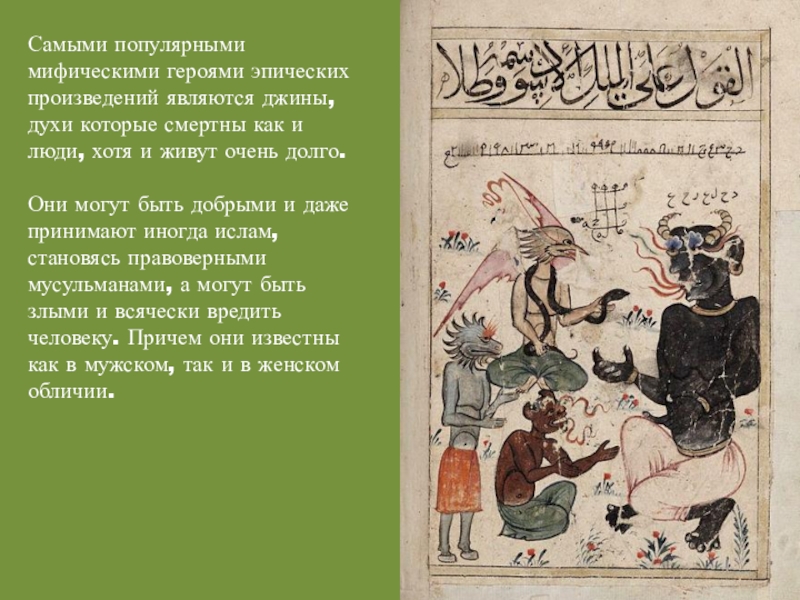 Самыми популярными
мифическими героями эпических
произведений являются джины,
духи которые смертны как и
люди, хотя и живут очень долго.
Они могут быть добрыми и даже
принимают иногда ислам,
становясь правоверными
мусульманами, а могут быть
злыми и всячески вредить
человеку. Причем они известны
как в мужском, так и в женском
обличии.
القول على الملك